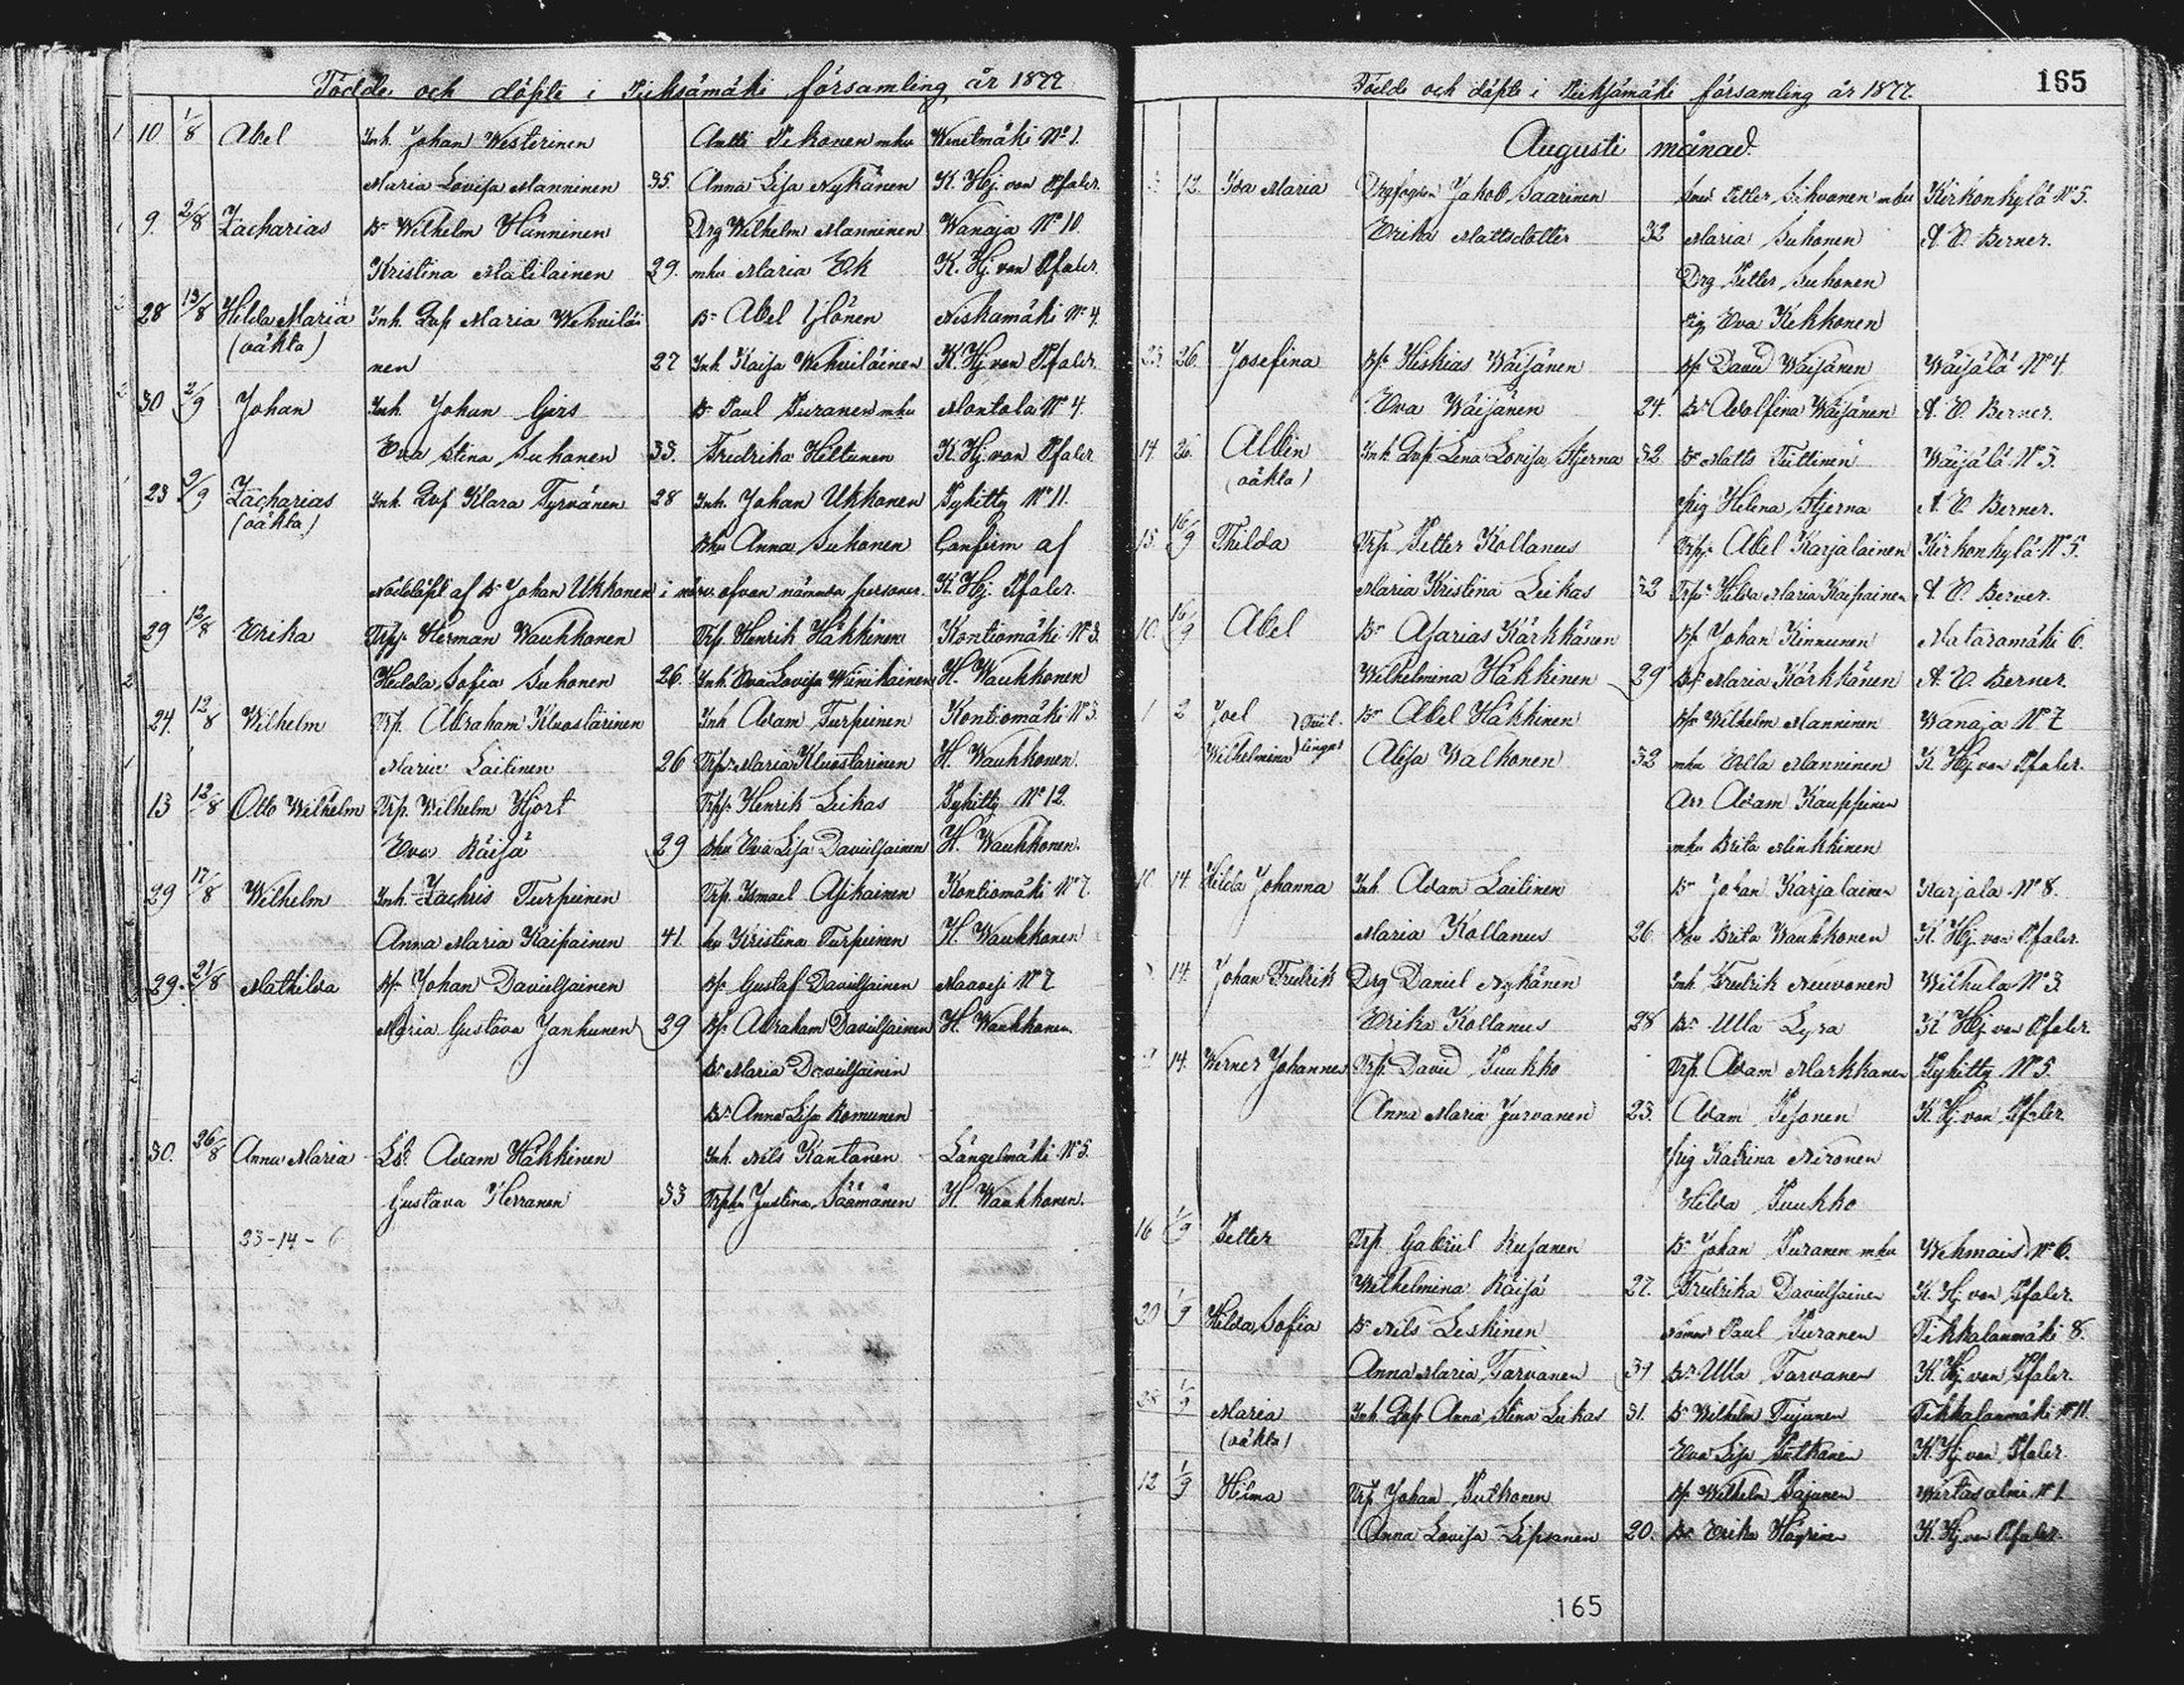 Födde och döpte i Pieksämäki församling år 1877
10. 1/8 Abel Inh. Johan Westerinen Antti Pekonen mhu Wenetmäki No 1.
Maria Lovisa Manninen 35. Anna Lisa Nykänen K. Hj. von Pfaler.
9. 2/8 Zacharias Bn Wilhelm Hänninen Drg Wilhelm Manninen Wanaja No 10.
Kristina Matilainen 29. mhu Maria Ek K. Hj. von Pfaler.
28 13/8 Hilda Maria Inh. Dtr Maria Wehviläi- Bn Abel Ylönen Neskamäki No 4.
(oäkta) nen 27 Inh. Kaisa Wehviläinen K. Hj. von Pfaler.
30 2/9 Johan Inh. Johan Girs Bn Paul Puranen mhu Montola No 4.
Eva Stina Suhonen 33. Fredrika Hiltunen K. Hj. von Pfaler
23 2/9 Zacharias Inh. Klara Tyrvänen 28 Inh. Johan Ukkonen Pykitty No 11.
(oäkta) Bhu Anna Suhonen Confirm af
Nöddöpt af Bn Johan Ukkonen i närv. ofvan nämnda personer. K. Hj. Pfaler.
29 12/8 Erika Trp. Herman Waukkonen Trp. Henrik Häkkinen Kontiomäki No 3.
Hedda Sofia Suhonen 26. Inh. Eva Lovisa Wiinikainen H. Waukkonen
24. 12/8 Wilhelm Trp. Abraham Kluostarinen Inh Adam Turpeinen Kontiomäki No 3.
Maria Laitinen 26 Trp. Maria Kluostarinen H. Waukkonen.
13 12/8 Otto Wilhelm Trp. Wilhelm Hjort Trp. Henrik Liikas Pykitty No 12.
Eva Räisä 29 Bhu Eva Lisa Davidsainen H. Waukkonen.
29 17/8 Wilhelm Inh. Zachris Turpeinen Trp. Ismael Asikainen Kontiomäki No 7.
Anna Maria Kaipainen 41. hu Kristina Turpeinen H. Waukkonen
29. 21/8 Mathilda Bs. Johan Davidsainen Bs. Gustaf Davidsainen Maavesi No 7
Maria Gustava Janhunen 29 Bs. Abraham Davidsainen H. Waukkonen.
Bd. Maria Davidsainen
Bd. Anna Lisa Romunen
30. 26/8 Anna Maria Ld. Adam Häkkinen Inh. Nils Kantanen Längelmäki No 5.
Gustava Herranen 33 Trphu Justina Säämänen H. Waukkonen.
23-14-6
Födde och döpte i Pieksämäki församling år 1877.
165
Augusti månad.
12. Ida Maria Jakob Saarinen Petter Sihvonen mhu Kirkonkylä No 5.
Erika Mattsdotter 32 Maria Suhonen A. E. Berner.
Drg Petter Suhonen
pig Eva Kekkonen
23. 26. Josefina Bs. Hiskias Wäisänen Bs. David Wäisänen Wäisälä No 4.
Eva Wäisänen 24. Bd. Adolfina Wäisänen A. E. Berner.
14. 26. Albin Inh. Lena Lovisa Stjerna 32 Bn Matts Tuttinen Wäisälä No 3.
(oäkta) pig Helena Stjerna A. E. Berner.
15. 16/9 Thilda Trp. Petter Kollanus Trp. Abel Karjalainen Kirkonkylä No 5.
Maria Kristina Liikas 32 Trpd. Hilda Maria Kaipainen A. E. Berner.
10. 16/9 Abel Bn Asarias Kärkkänen Bs. Johan Kinnunen Nataramäki 6.
Wilhelmina Häkkinen 29 Bd. Maria Kärkkänen A. E. Berner.
1 2 Joel } Tvil- Bn Abel Häkkinen Bs. Wilhelm Manninen Wanaja No 7
Wilhelmina } lingar Alisa Walkonen 32 mhu Ulla Manninen K. Hj. von Pfaler.
Arr Adam Kauppinen
mhu Brita Minkkinen
14. Hilda Johanna Inh. Adam Laitinen Bn Johan Karjalainen Karjala No 8.
Maria Kollanus 26. Bhu Brita Waukkonen K. Hj. von Pfaler.
14. Johan Fredrik Drg Daniel Nykänen Inh. Fredrik Neuvonen Wilhula No 3
Erika Kollanus 28 Bd. Ulla Lyra K. Hj. von Pfaler.
14. Werner Johannes Trp. David Puukko Trp. Adam Markkanen Pykitty No 5.
Anna Maria Jurvanen 23. Adam Pesonen K. Hj. von Pfaler
pig Katrina Nironen
Hilda Puukko
16 1/9 Petter Trp. Gabriel Rusanen Bn Johan Puranen mhu Wehmais No 6.
Wilhelmina Räisä 27. Fredrika Davidsainen K. Hj. von Pfaler.
20 1/9 Hilda Sofia Bn Nils Leskinen Paul Puranen Tikkalanmäki 8.
Anna Maria Tarvanen 34 Bd. Ulla Tarvanen K. Hj. von Pfaler.
28 1/9 Maria Inh. Anna Stina Liikas 31. Bn Wilhelm Tujunen Tikkalanmäki No 11.
(oäkta) Eva Lisa Pulkanen K. Hj. von Pfaler.
12 1/9 Hilma Trp. Johan Putkonen Bs. Wilhelm Pajunen Wirtasalmi No 1.
Anna Lovisa Lipsanen 20. Bd. Erika Häyrinen K. Hj. von Pfaler.
165